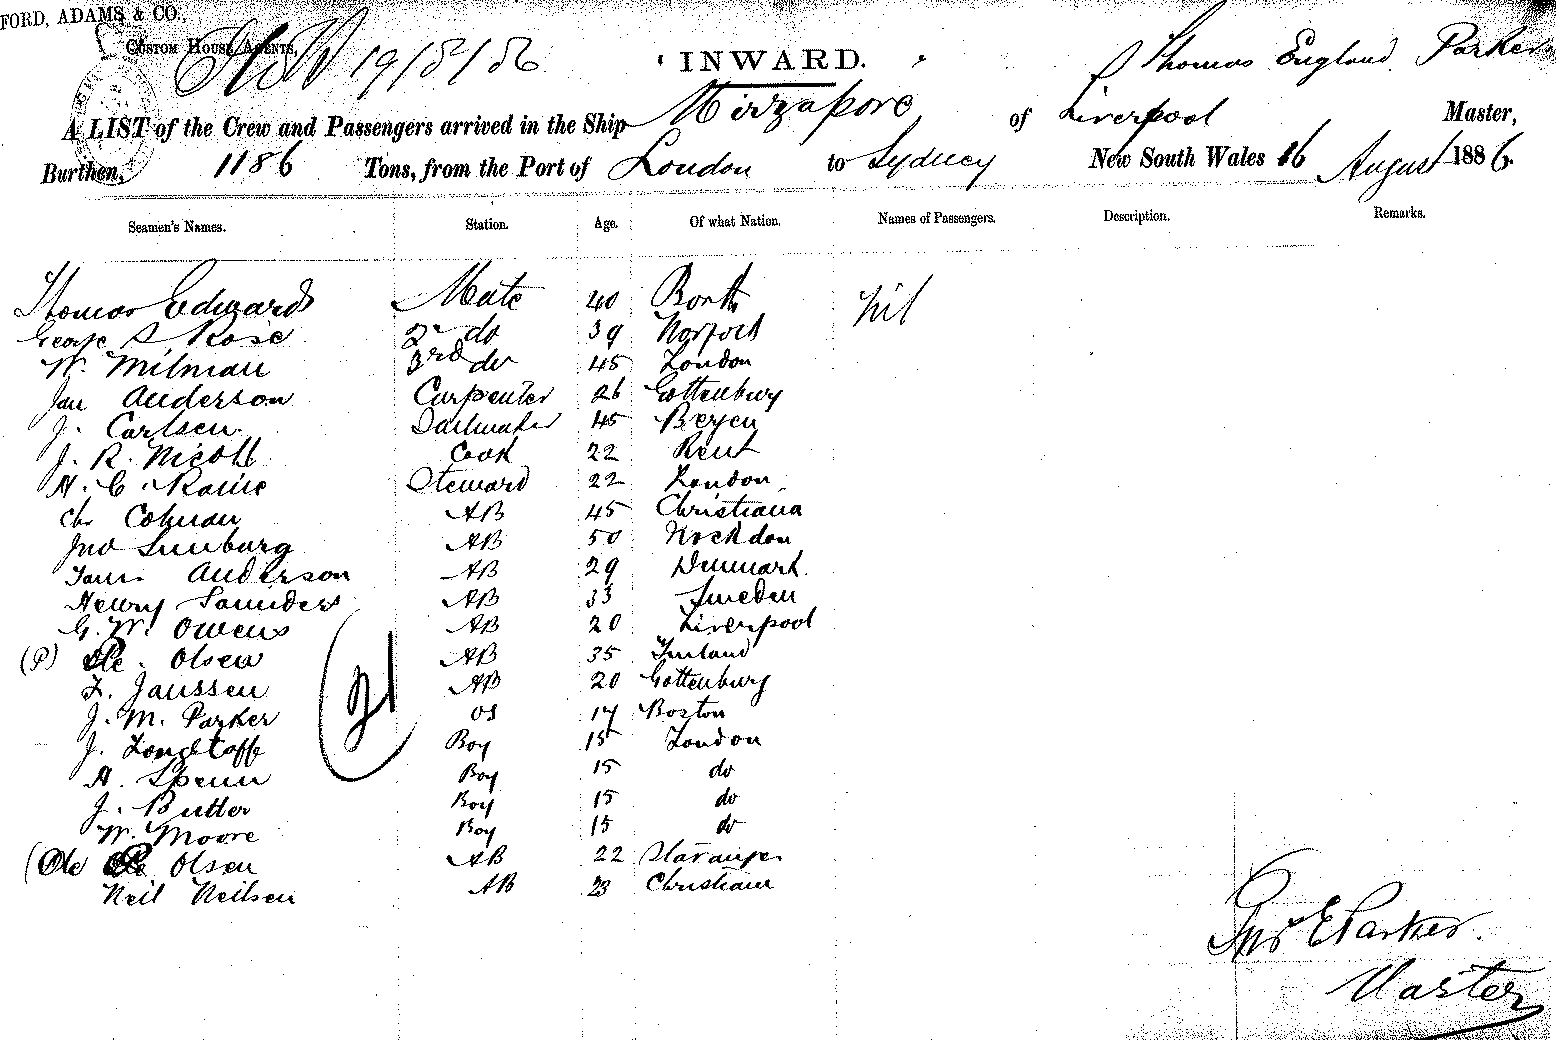 FORD, ADAMS & CO.,
CUSTOM HOUSE AGENTS,
19/8/86
INWARD.
Thomas England Parker
A LIST of the Crew and Passengers arrived in the Ship Mirzapore of Liverpool Master,
Burthen, 1186 Tons, from the Port of London to Sydney New South Wales 16 August 1886.
Seamen's Names. Station. Age. Of what Nation. Names of Passengers. Description. Remarks.
Thomas Edwards Mate 40 Borth Nil
George S Rose 2nd do 39 Norfolk
W. Milman 3rd do 45 London
Jan Anderson Carpenter 26 Gottenburg
J. Carlsen Sailmaker 45 Bergen
J. R. Nicoll Cook 22 Kent
H. C. Raine Steward 22 London
Chr Colman AB 45 Christiana
Jno Lunburg AB 50 
Anderson AB 29 Denmark
Henry Saunders AB 33 Sweden
G. W. Owens AB 20 Liverpool
(P) Olsen AB 35 Finland
F. Janssen AB 20 Gottenburg
J. M. Parker OS 17 Boston
J. Longstaff Boy 15 London
A. Spenn Boy 15 do
J. Butter Boy 15 do
W. Moore Boy 15 do
(Ole Olsen AB 22 Stavanger
Neil Neilsen AB 23 Christiana
21
Thos E Parker.
Master